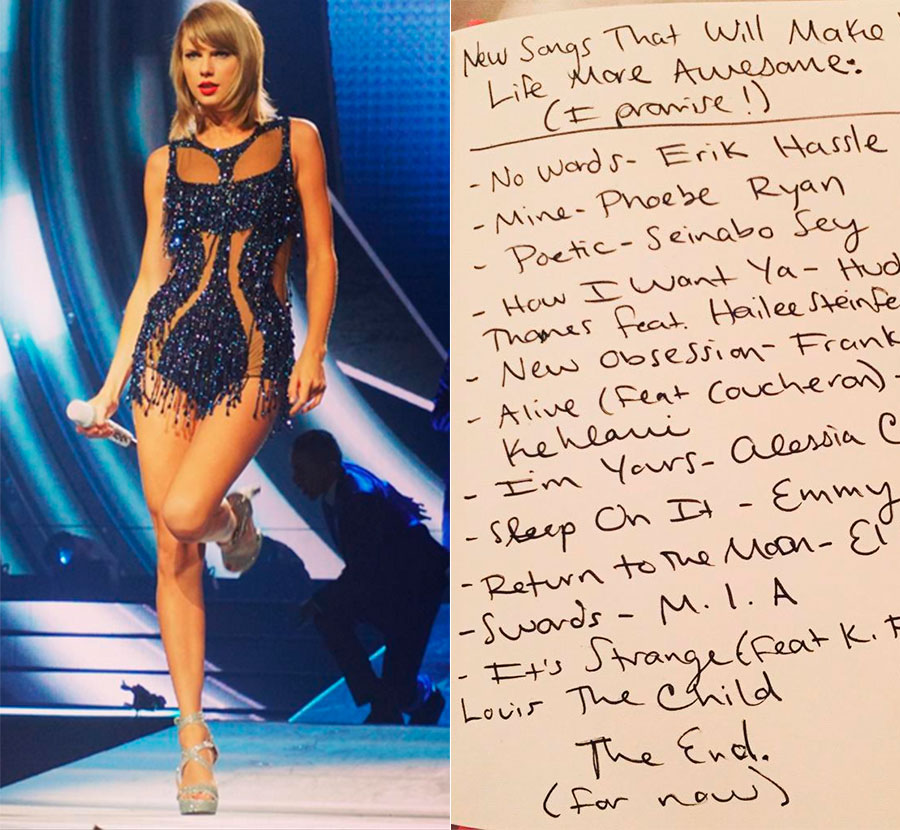 New Songs That Will Make
Life More Awesome:
(I promise!)
- No Words - Erik Hassle
- Mine - Phoebe Ryan
- Poetic - Seinabo Sey
- How I Want Ya - Hud
Thames feat. Hailee Steinfe
- New Obsession - Frank
- Alive (Feat Coucheron) -
Kehlani
- I'm Yours - Alessia C
- Sleep On It - Emmy
- Return to the Moon - El
- Swords - M.I.A
- It's Strange (Feat K.
Louis The Child
The End.
(for now)